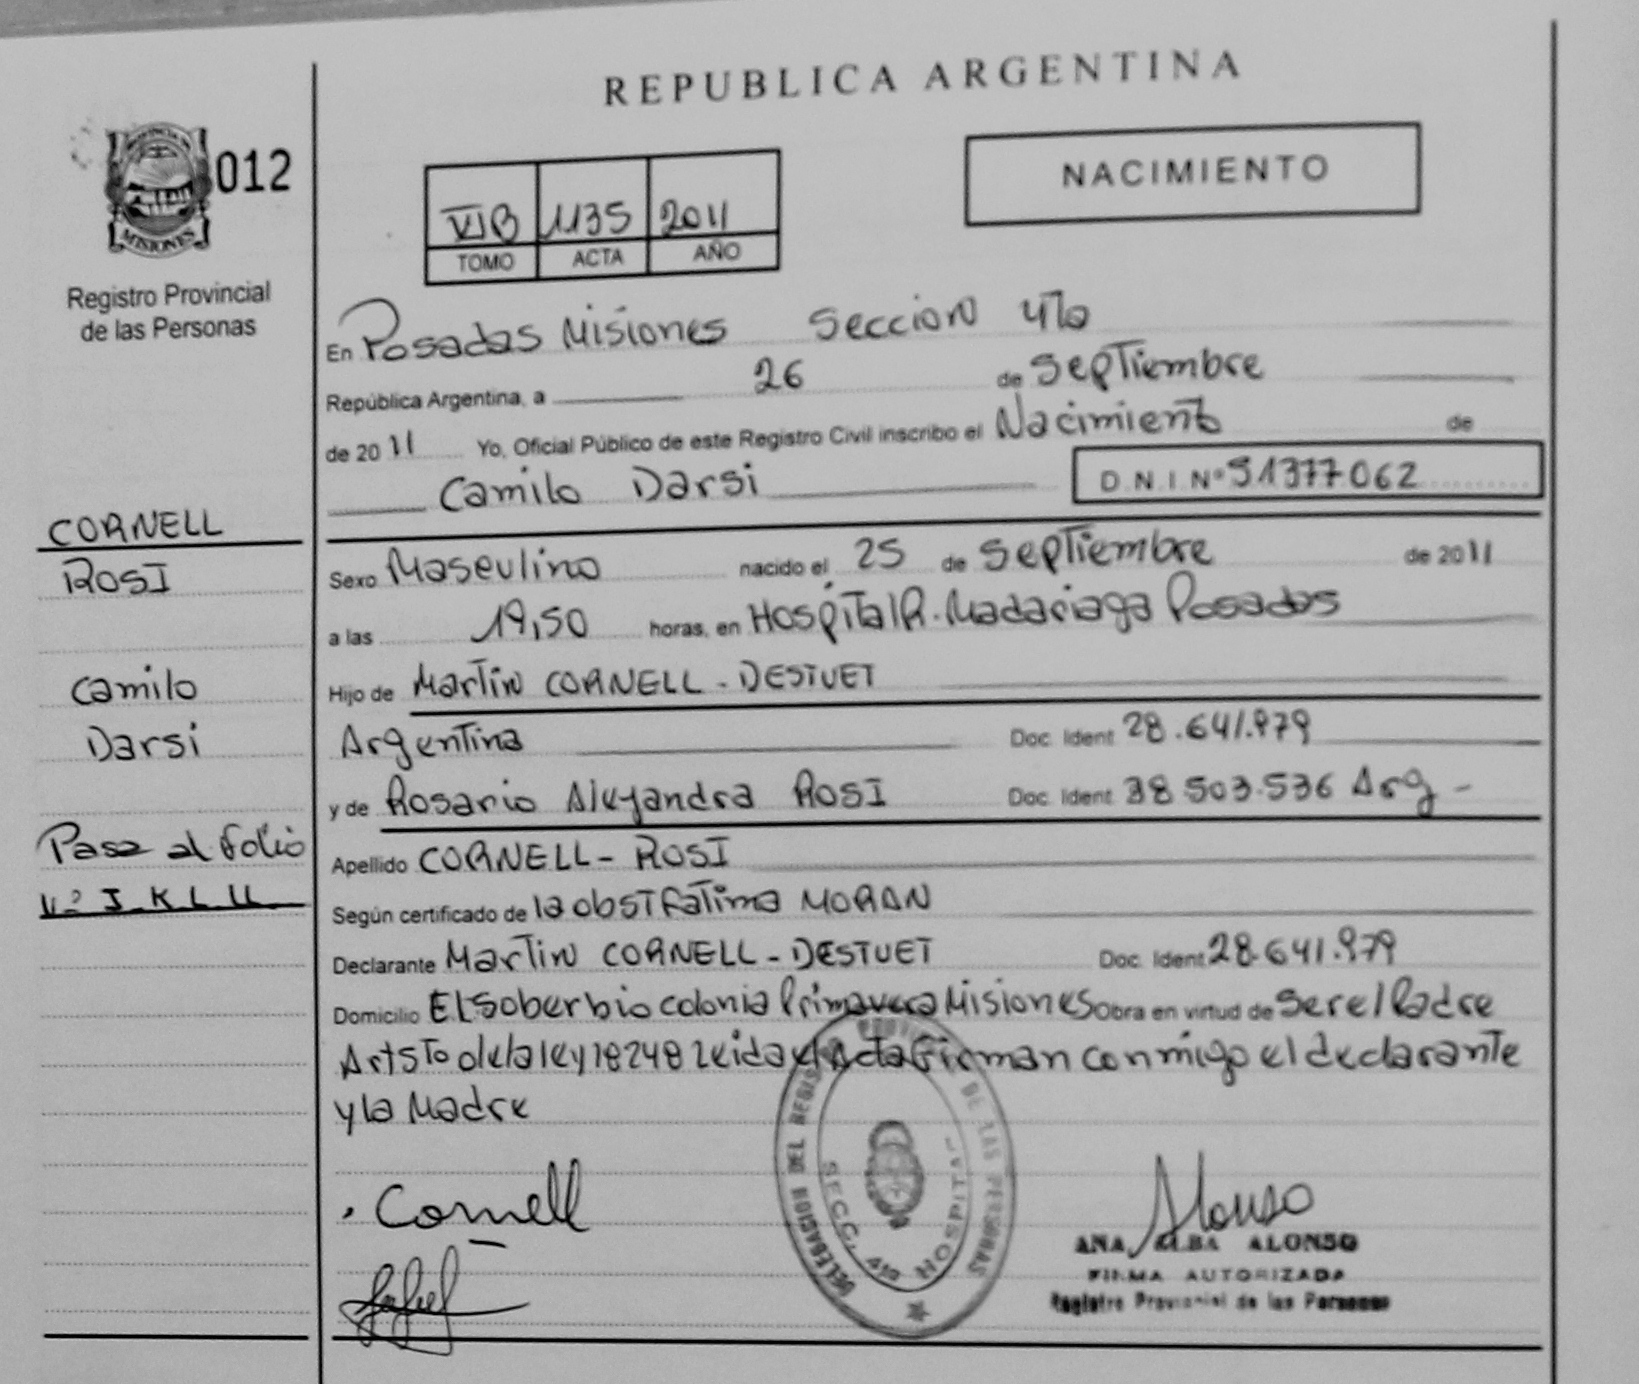 REPUBLICA ARGENTINA
012
MISIONES
Registro Provincial
de las Personas
NACIMIENTO
VIB 1135 2011
TOMO ACTA AÑO
En Posadas Misiones Seccion 4ta
República Argentina, a 26 de Septiembre
de 2011 Yo, Oficial Público de este Registro Civil inscribo el Nacimiento de
Camilo Darsi D.N.I. Nº 51377062
CORNELL
ROSI
Camilo
Darsi
Pasa al folio
Nº J K L LL
Sexo Masculino nacido el 25 de Septiembre de 2011
a las 19,50 horas, en Hospital R. Madariaga Posadas
Hijo de Martin CORNELL - DESTUET
Argentina Doc. Ident 28.641.979
y de Rosario Alejandra ROSI Doc. Ident 38.503.536 Arg -
Apellido CORNELL - ROSI
Según certificado de la obst Fatima MORAN
Declarante Martin CORNELL - DESTUET Doc. Ident 28.641.979
Domicilio El Soberbio colonia Primavera Misiones Obra en virtud de Ser el Padre
Art 5to de la ley 18248 Leida el Acta Firman conmigo el declarante
y la Madre
Cornell
DELEGACION DEL REGISTRO PROVINCIAL DE LAS PERSONAS
SECC. 4ta HOSPITAL
Alonso
ANA ALBA ALONSO
FIRMA AUTORIZADA
Registro Provincial de las Personas